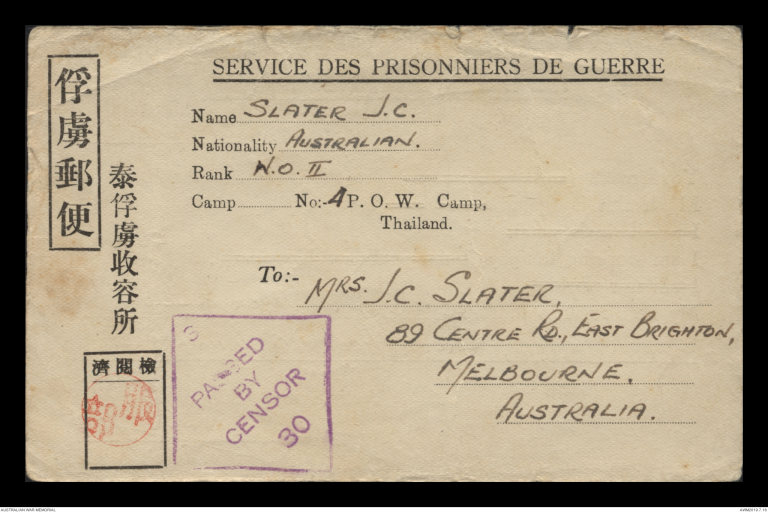 俘虜郵便
泰俘虜收容所
SERVICE DES PRISONNIERS DE GUERRE
Name SLATER J.C.
Nationality AUSTRALIAN.
Rank W.O. II
Camp No:- 4 P. O. W. Camp,
Thailand.
To:- MRS. J.C. SLATER,
89 CENTRE RD., EAST BRIGHTON,
MELBOURNE,
AUSTRALIA.
檢閲濟
PASSED
BY
CENSOR
30
AUSTRALIAN WAR MEMORIAL